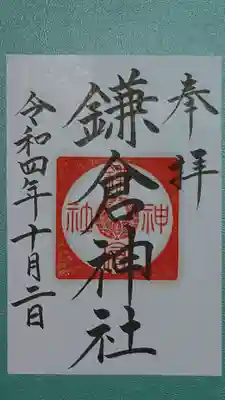 奉拝
鎌倉神社
令和四年十月二日